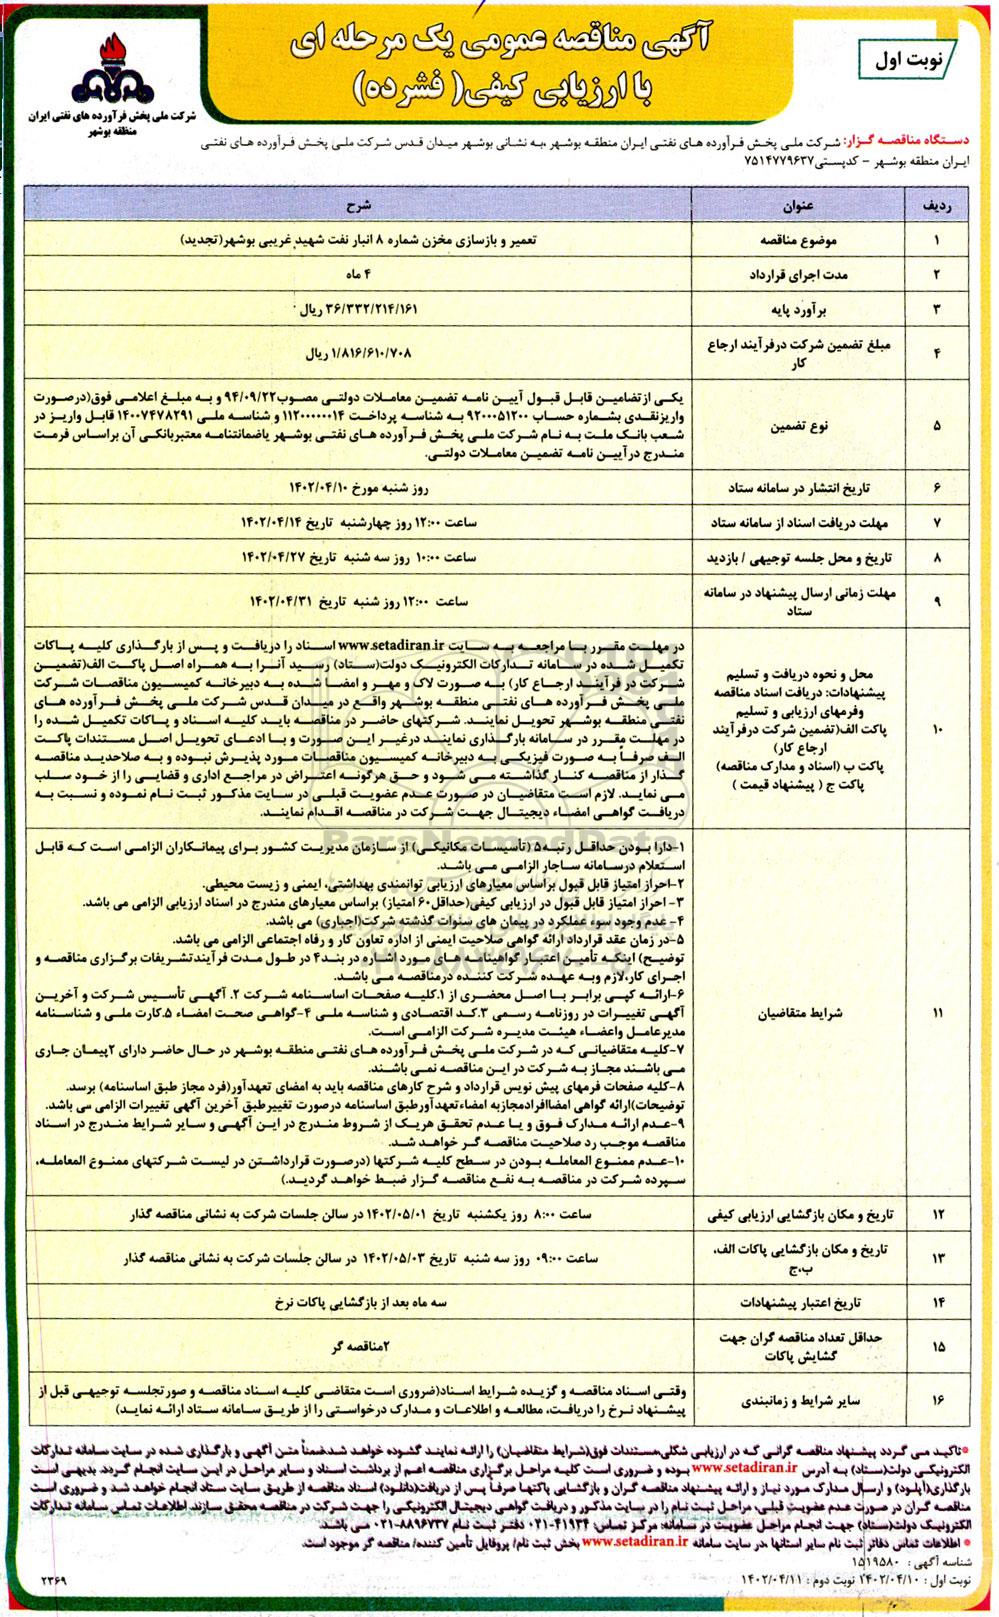 آگهی مناقصه عمومی یک مرحله ای
با ارزیابی کیفی( فشرده)
نوبت اول
شرکت ملی پخش فرآورده های نفتی ایران
منطقه بوشهر
دستگاه مناقصه گزار: شرکت ملی پخش فرآورده های نفتی ایران منطقه بوشهر ،به نشانی بوشهر میدان قدس شرکت ملی پخش فرآورده های نفتی
ایران منطقه بوشهر - کدپستی۷۵۱۴۷۷۹۶۳۷
ردیف عنوان شرح
۱ موضوع مناقصه تعمیر و بازسازی مخزن شماره ۸ انبار نفت شهید غریبی بوشهر(تجدید)
۲ مدت اجرای قرارداد ۴ ماه
۳ برآورد پایه ۳۶/۳۳۲/۲۱۴/۱۶۱ ریال
۴ مبلغ تضمین شرکت درفرآیند ارجاع
کار
۱/۸۱۶/۶۱۰/۷۰۸ ریال
۵ نوع تضمین
یکی ازتضامین قابل قبول آیین نامه تضمین معاملات دولتی مصوب۹۴/۰۹/۲۲ و به مبلغ اعلامی فوق(درصورت
واریزنقدی بشماره حساب ۹۲۰۰۰۵۱۲۰۰ به شناسه پرداخت ۱۱۲۰۰۰۰۰۰۱۴ و شناسه ملی ۱۴۰۰۷۴۷۸۲۹۱ قابل واریز در
شعب بانک ملت به نام شرکت ملی پخش فرآورده های نفتی بوشهر یاضمانتنامه معتبربانکی آن براساس فرمت
مندرج درآیین نامه تضمین معاملات دولتی.
۶ تاریخ انتشار در سامانه ستاد روز شنبه مورخ ۱۴۰۲/۰۴/۱۰
۷ مهلت دریافت اسناد از سامانه ستاد ساعت ۱۲:۰۰ روز چهارشنبه تاریخ ۱۴۰۲/۰۴/۱۴
۸ تاریخ و محل جلسه توجیهی / بازدید ساعت ۱۰:۰۰ روز سه شنبه تاریخ ۱۴۰۲/۰۴/۲۷
۹ مهلت زمانی ارسال پیشنهاد در سامانه
ستاد
ساعت ۱۲:۰۰ روز شنبه تاریخ ۱۴۰۲/۰۴/۳۱
۱۰ محل و نحوه دریافت و تسلیم
پیشنهادات: دریافت اسناد مناقصه
وفرمهای ارزیابی و تسلیم
پاکت الف(تضمین شرکت درفرآیند
ارجاع کار)
پاکت ب (اسناد و مدارک مناقصه)
پاکت ج ( پیشنهاد قیمت )
در مهلت مقرر با مراجعه به سایت www.setadiran.ir اسناد را دریافت و پس از بارگذاری کلیه پاکات
تکمیل شده در سامانه تدارکات الکترونیک دولت(ستاد) رسید آنرا به همراه اصل پاکت الف(تضمین
شرکت در فرآیند ارجاع کار) به صورت لاک و مهر و امضا شده به دبیرخانه کمیسیون مناقصات شرکت
ملی پخش فرآورده های نفتی منطقه بوشهر واقع در میدان قدس شرکت ملی پخش فرآورده های
نفتی منطقه بوشهر تحویل نمایند. شرکتهای حاضر در مناقصه باید کلیه اسناد و پاکات تکمیل شده را
در مهلت مقرر در سامانه بارگذاری نمایند درغیر این صورت و با ادعای تحویل اصل مستندات پاکت
الف صرفاً به صورت فیزیکی به دبیرخانه کمیسیون مناقصات مورد پذیرش نبوده و به صلاحدید مناقصه
گذار از مناقصه کنار گذاشته می شود و حق هرگونه اعتراض در مراجع اداری و قضایی را از خود سلب
می نماید. لازم است متقاضیان در صورت عدم عضویت قبلی در سایت مذکور ثبت نام نموده و نسبت به
دریافت گواهی امضاء دیجیتال جهت شرکت در مناقصه اقدام نمایند.
۱۱ شرایط متقاضیان
۱-دارا بودن حداقل رتبه۵ (تأسیسات مکانیکی) از سازمان مدیریت کشور برای پیمانکاران الزامی است که قابل
استعلام درسامانه ساجار الزامی می باشد.
۲-احراز امتیاز قابل قبول براساس معیارهای ارزیابی توانمندی بهداشتی، ایمنی و زیست محیطی.
۳- احراز امتیاز قابل قبول در ارزیابی کیفی(حداقل۶۰ امتیاز) براساس معیارهای مندرج در اسناد ارزیابی الزامی می باشد.
۴- عدم وجود سوء عملکرد در پیمان های سنوات گذشته شرکت(اجباری) می باشد.
۵-در زمان عقد قرارداد ارائه گواهی صلاحیت ایمنی از اداره تعاون کار و رفاه اجتماعی الزامی می باشد.
توضیح) اینکه تأمین اعتبار گواهینامه های مورد اشاره در بند۴ در طول مدت فرآیندتشریفات برگزاری مناقصه و
اجرای کار،لازم وبه عهده شرکت کننده درمناقصه می باشد.
۶-ارائه کپی برابر با اصل محضری از ۱.کلیه صفحات اساسنامه شرکت ۲. آگهی تأسیس شرکت و آخرین
آگهی تغییرات در روزنامه رسمی ۳.کد اقتصادی و شناسه ملی ۴-گواهی صحت امضاء ۵.کارت ملی و شناسنامه
مدیرعامل واعضاء هیئت مدیره شرکت الزامی است.
۷-کلیه متقاضیانی که در شرکت ملی پخش فرآورده های نفتی منطقه بوشهر در حال حاضر دارای ۲پیمان جاری
می باشند مجاز به شرکت در این مناقصه نمی باشند.
۸-کلیه صفحات فرمهای پیش نویس قرارداد و شرح کارهای مناقصه باید به امضای تعهدآور(فرد مجاز طبق اساسنامه) برسد.
توضیحات)ارائه گواهی امضاافرادمجازبه امضاءتعهدآورطبق اساسنامه درصورت تغییرطبق آخرین آگهی تغییرات الزامی می باشد.
۹-عدم ارائه مدارک فوق و یا عدم تحقق هریک از شروط مندرج در این آگهی و سایر شرایط مندرج در اسناد
مناقصه موجب رد صلاحیت مناقصه گر خواهد شد.
۱۰-عدم ممنوع المعامله بودن در سطح کلیه شرکتها (درصورت قرارداشتن در لیست شرکتهای ممنوع المعامله،
سپرده شرکت در مناقصه به نفع مناقصه گزار ضبط خواهد گردید.)
۱۲ تاریخ و مکان بازگشایی ارزیابی کیفی ساعت ۸:۰۰ روز یکشنبه تاریخ ۱۴۰۲/۰۵/۰۱ در سالن جلسات شرکت به نشانی مناقصه گذار
۱۳ تاریخ و مکان بازگشایی پاکات الف،
ب،ج
ساعت ۰۹:۰۰ روز سه شنبه تاریخ ۱۴۰۲/۰۵/۰۳ در سالن جلسات شرکت به نشانی مناقصه گذار
۱۴ تاریخ اعتبار پیشنهادات سه ماه بعد از بازگشایی پاکات نرخ
۱۵ حداقل تعداد مناقصه گران جهت
گشایش پاکات
۲مناقصه گر
۱۶ سایر شرایط و زمانبندی
وقتی اسناد مناقصه و گزیده شرایط اسناد(ضروری است متقاضی کلیه اسناد مناقصه و صورتجلسه توجیهی قبل از
پیشنهاد نرخ را دریافت، مطالعه و اطلاعات و مدارک درخواستی را از طریق سامانه ستاد ارائه نماید)
*تاکید می گردد پیشنهاد مناقصه گرانی که در ارزیابی شکلی،مستندات فوق(شرایط متقاضیان) را ارائه نمایند گشوده خواهد شد.ضمناً متن آگهی و بارگذاری شده در سایت سامانه تدارکات
الکترونیکی دولت(ستاد) به آدرس www.setadiran.ir بوده و ضروری است کلیه مراحل برگزاری مناقصه اعم از برداشت اسناد و سایر مراحل در این سایت انجام گردد. بدیهی است
بارگذاری(آپلود) و ارسال مدارک مورد نیاز و ارائه پیشنهاد مناقصه گران و بازگشایی پاکتها صرفاً پس از دریافت(دانلود) اسناد مناقصه از طریق سایت ستاد انجام خواهد شد و ضروری است
مناقصه گران در صورت عدم عضویت قبلی، مراحل ثبت نام را در سایت مذکور و دریافت گواهی دیجیتال الکترونیکی را جهت شرکت در مناقصه محقق سازند.اطلاعات تماس سامانه تدارکات
الکترونیک دولت(ستاد) جهت انجام مراحل عضویت در سامانه: مرکز تماس: ۴۱۹۳۴-۰۲۱ دفتر ثبت نام ۸۸۹۶۷۳۷-۰۲۱ می باشد.
* اطلاعات تماس دفاتر ثبت نام سایر استانها ،در سایت سامانه www.setadiran.ir بخش ثبت نام/ پروفایل تأمین کننده/ مناقصه گر موجود است.
شناسه آگهی : ۱۵۱۹۵۸۰
نوبت اول : ۱۴۰۲/۰۴/۱۰ نوبت دوم : ۱۴۰۲/۰۴/۱۱
۲۳۶۹
ParsNamadData